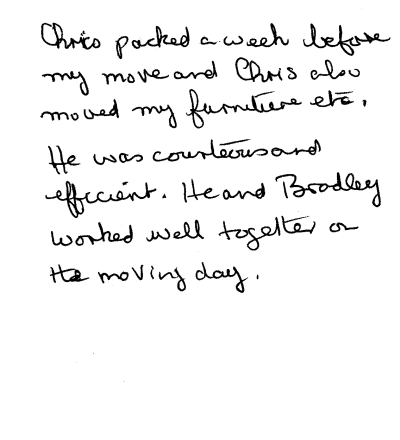 Chris packed a week before
my move and Chris also
moved my furniture etc.
He was courteous and
efficient. He and Bradley
worked well together on
the moving day.